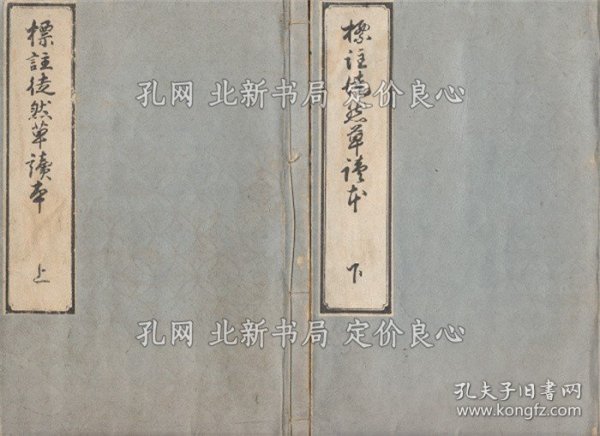 標註徒然草讀本 上
標註徒然草讀本 下
孔网 北新书局 定价良心
孔网 北新书局 定价良心
孔夫子旧书网
www.kongfz.com